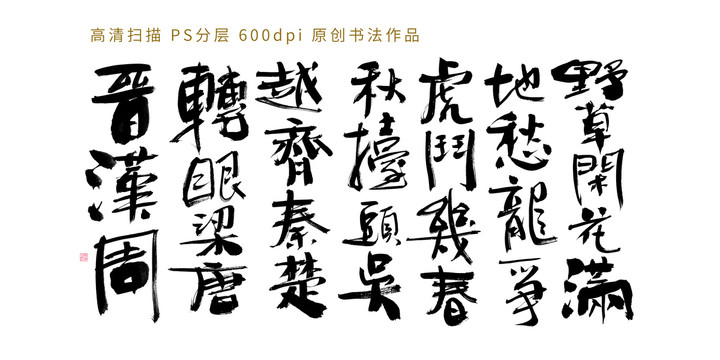 高清扫描 PS分层 600dpi 原创书法作品
野草閑花滿
地愁龍爭
虎鬥幾春
秋擡頭吳
越齊秦楚
轉眼梁唐
晋漢周